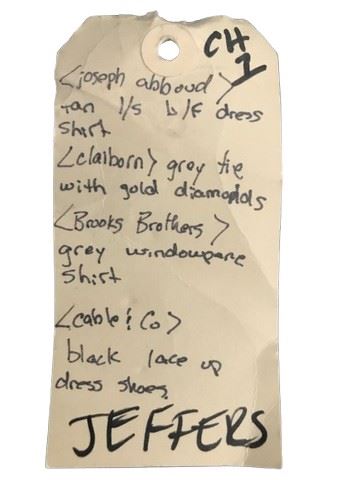 CH
1
<joseph abboud>
tan l/s b/f dress
shirt
<claiborn> grey tie
with gold diamonds
<Brooks Brothers>
grey windowpane
shirt
<cable & Co>
black lace up
dress shoes
JEFFERS